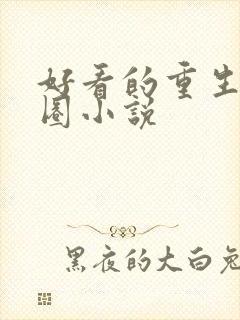 好看的重生
圈小说
黑夜的大白兔